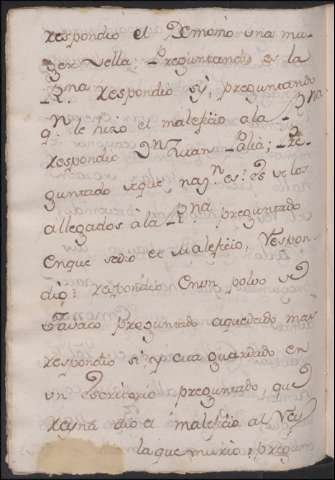 respondio el Demonio una mu-
ger vella; Preguntando es la
Rna respondio sí, preguntando
qn le hizo el maleficio a la Rna
respondio Dn Juan Palia; Pre-
guntado seque nazn es: es de los
allegados a la Rna preguntado
enque sedio el Maleficio, Yespon
dio: respondio Enun polvo de
tavaco preguntado aquedado mas
respondio si: y esta guardado en
un Escritorio preguntado que
Reyna dio el maleficio al Rey
la que murio; pregun